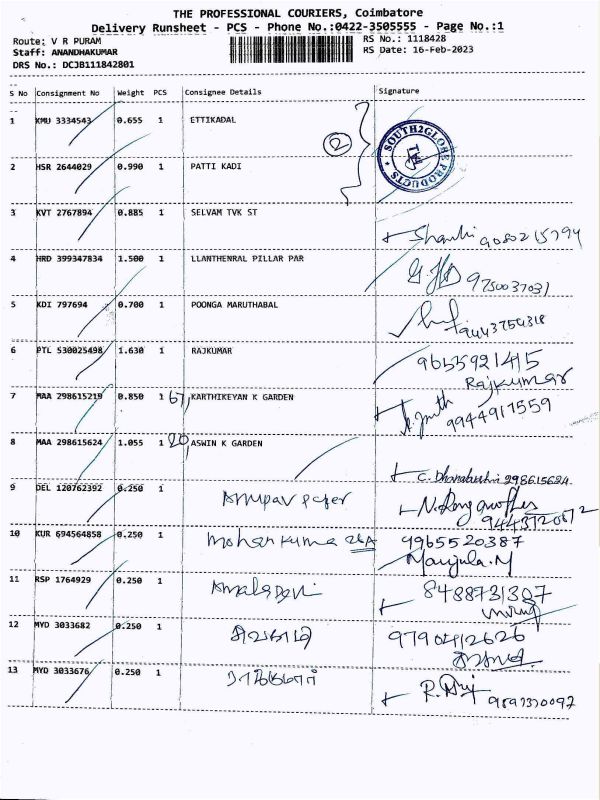 THE PROFESSIONAL COURIERS, Coimbatore
Delivery Runsheet - PCS - Phone No.:0422-3505555 - Page No.:1
Route: V R PURAM
RS No.: 1118428
Staff: ANANDHAKUMAR
RS Date: 16-Feb-2023
DRS No.: DCJB111842801
S No Consignment No Weight PCS Consignee Details Signature
1 KMU 3334543 0.655 1 ETTIKADAL
2
SOUTH2GLOBE PRODUCTS
2 HSR 2644029 0.990 1 PATTI KADI
3 KVT 2767894 0.885 1 SELVAM TVK ST
Shanthi 9080215794
4 HRD 399347834 1.500 1 LLANTHENRAL PILLAR PAR
9750037031
5 KDI 797694 0.700 1 POONGA MARUTHABAL
9443754318
6 PTL 530025498 1.630 1 RAJKUMAR
9655921415
Rajkumar
7 MAA 298615219 0.850 1 67, KARTHIKEYAN K GARDEN
9944917559
8 MAA 298615624 1.055 1 20, ASWIN K GARDEN
298615624
9 DEL 120762392 0.250 1
9443720672
10 KUR 694564858 0.250 1 mohan kuma
9965520387
Manjula.M
11 RSP 1764929 0.250 1 Amala Devi
8488731307
12 MYD 3033682 0.250 1 சிவகாமி
9790412626
13 MYD 3033676 0.250 1